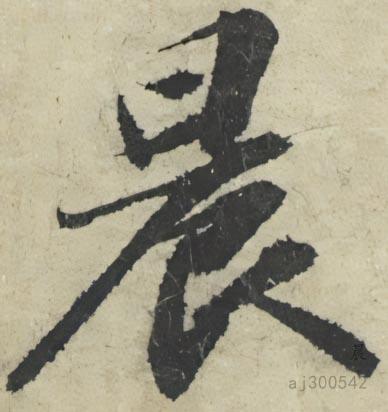 晨
晨
aj300542